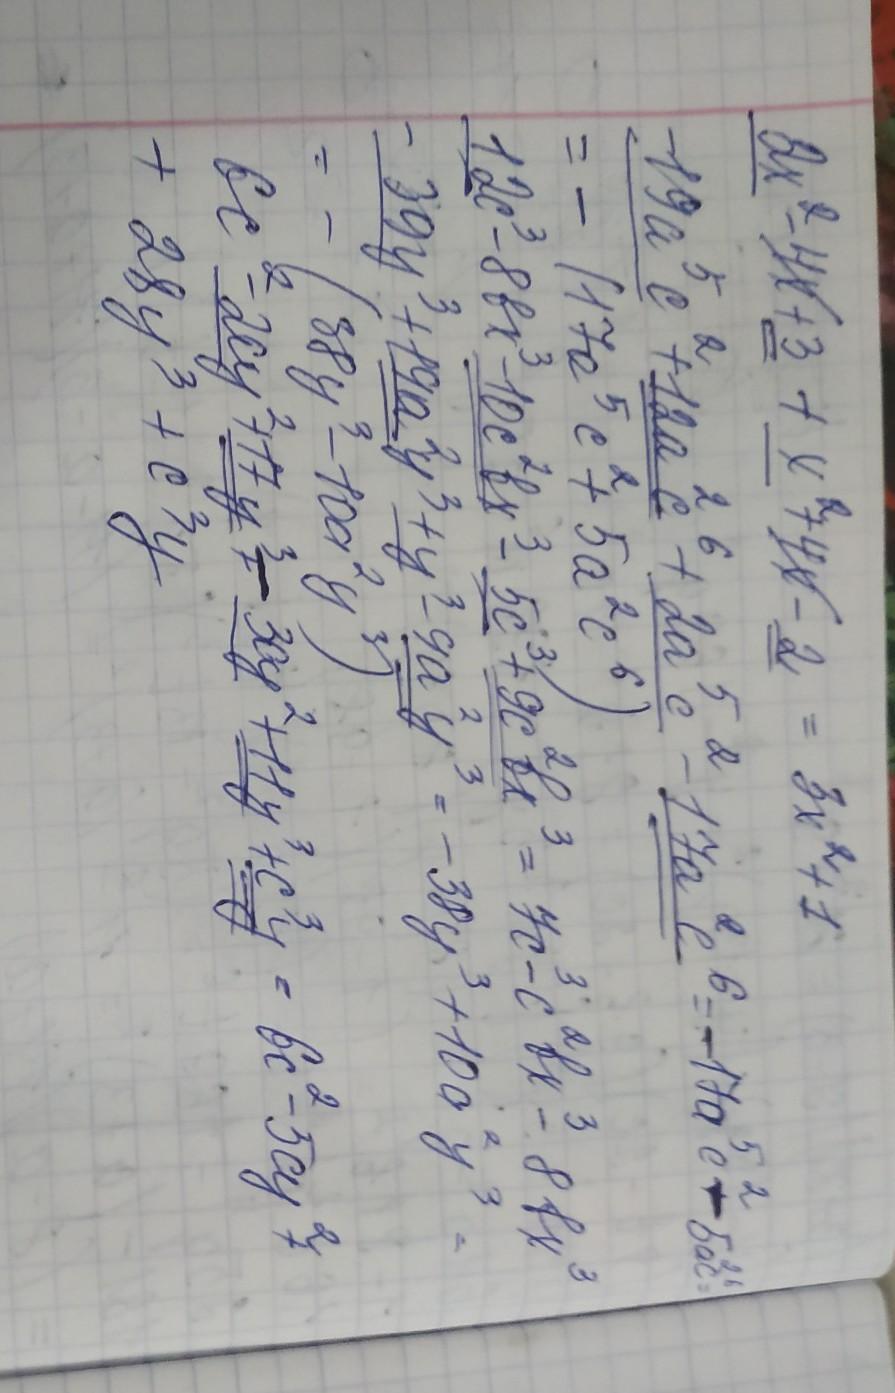 2x² - 4x + 3 + x² + 4x - 2 = 3x² + 1
-19a⁵c² + 12a²c⁶ + 2a⁵c² - 17a²c⁶ = -17a⁵c² - 5a²c⁶ =
= -(17a⁵c² + 5a²c⁶)
12c³ - 8bx³ - 10c²bx³ - 5c³ + 9c²bx³ = 7c³ - c²bx³ - 8bx³
-39y³ + 19a²y³ + y³ - 9a²y³ = -38y³ + 10a²y³ =
= -(38y³ - 10a²y³)
6c² - 2cy² + 17y³ - 3cy² + 11y³ + c³y = 6c² - 5cy² +
+ 28y³ + c³y